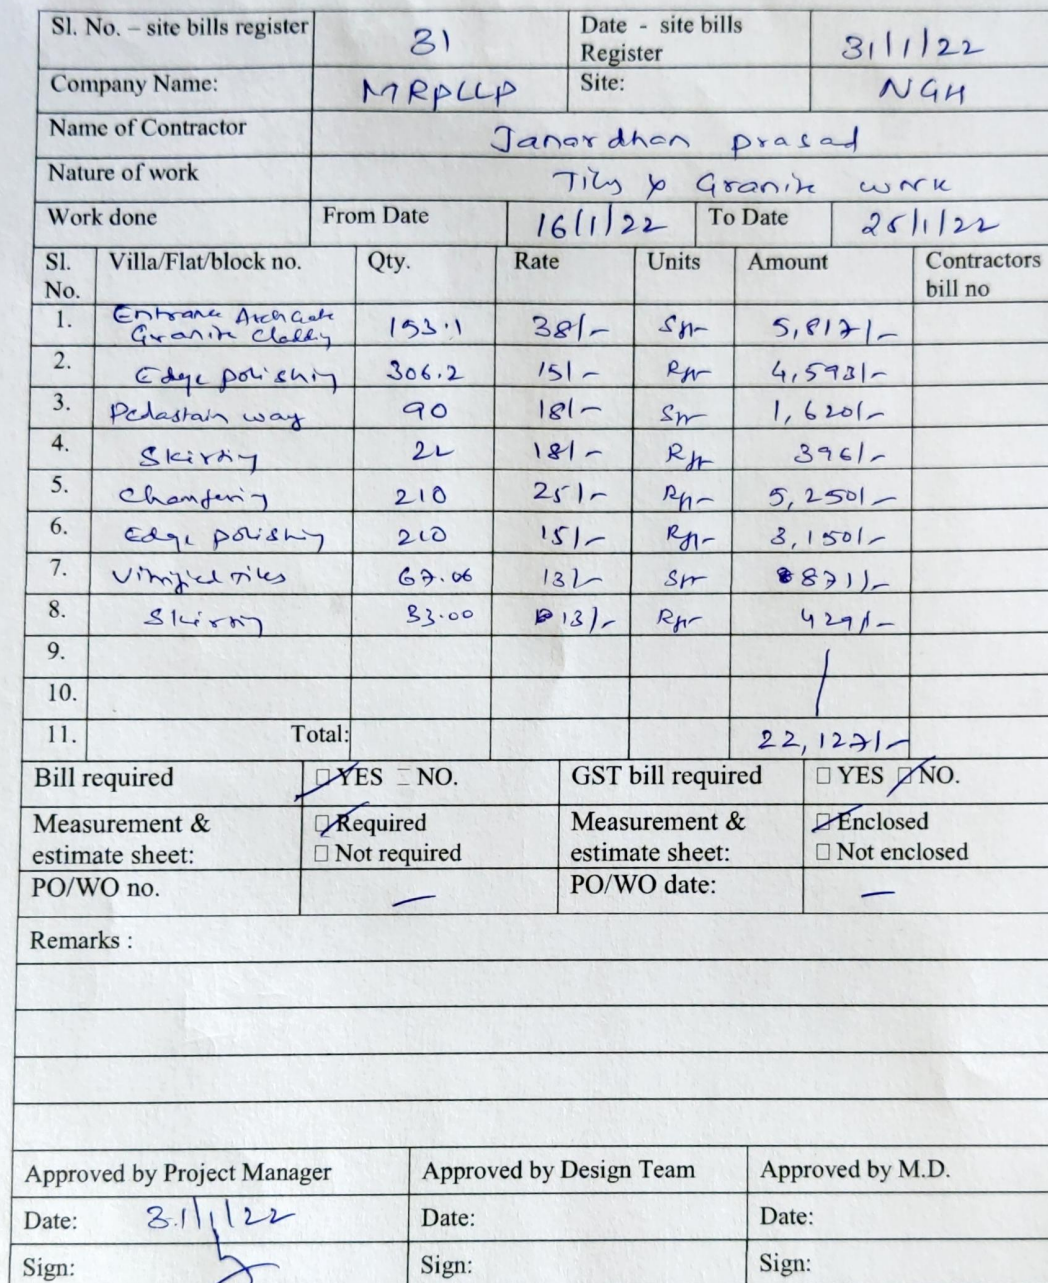 Sl. No. – site bills register 31 Date - site bills Register 31/1/22
Company Name: MRPLLP Site: NGH
Name of Contractor Janardhan prasad
Nature of work Tiles & Granite work
Work done From Date 16/1/22 To Date 25/1/22
Sl. No. Villa/Flat/block no. Qty. Rate Units Amount Contractors bill no
1. Entrance Arch Gate Granite Cladding 153.1 38/- Sft 5,817/-
2. Edge polishing 306.2 15/- Rft 4,593/-
3. Pedastain way 90 18/- Sft 1,620/-
4. Skirting 22 18/- Rft 396/-
5. Chamfering 210 25/- Rft 5,250/-
6. Edge polishing 210 15/- Rft 3,150/-
7. Vitrified Tiles 67.06 13/- Sft 871/-
8. Skirting 33.00 13/- Rft 429/-
9.
10.
11. Total: 22,127/-
Bill required □ YES □ NO. GST bill required □ YES □ NO.
Measurement & estimate sheet: □ Required □ Not required Measurement & estimate sheet: □ Enclosed □ Not enclosed
PO/WO no. — PO/WO date: —
Remarks :
Approved by Project Manager Approved by Design Team Approved by M.D.
Date: 31/1/22 Date: Date:
Sign: Sign: Sign: